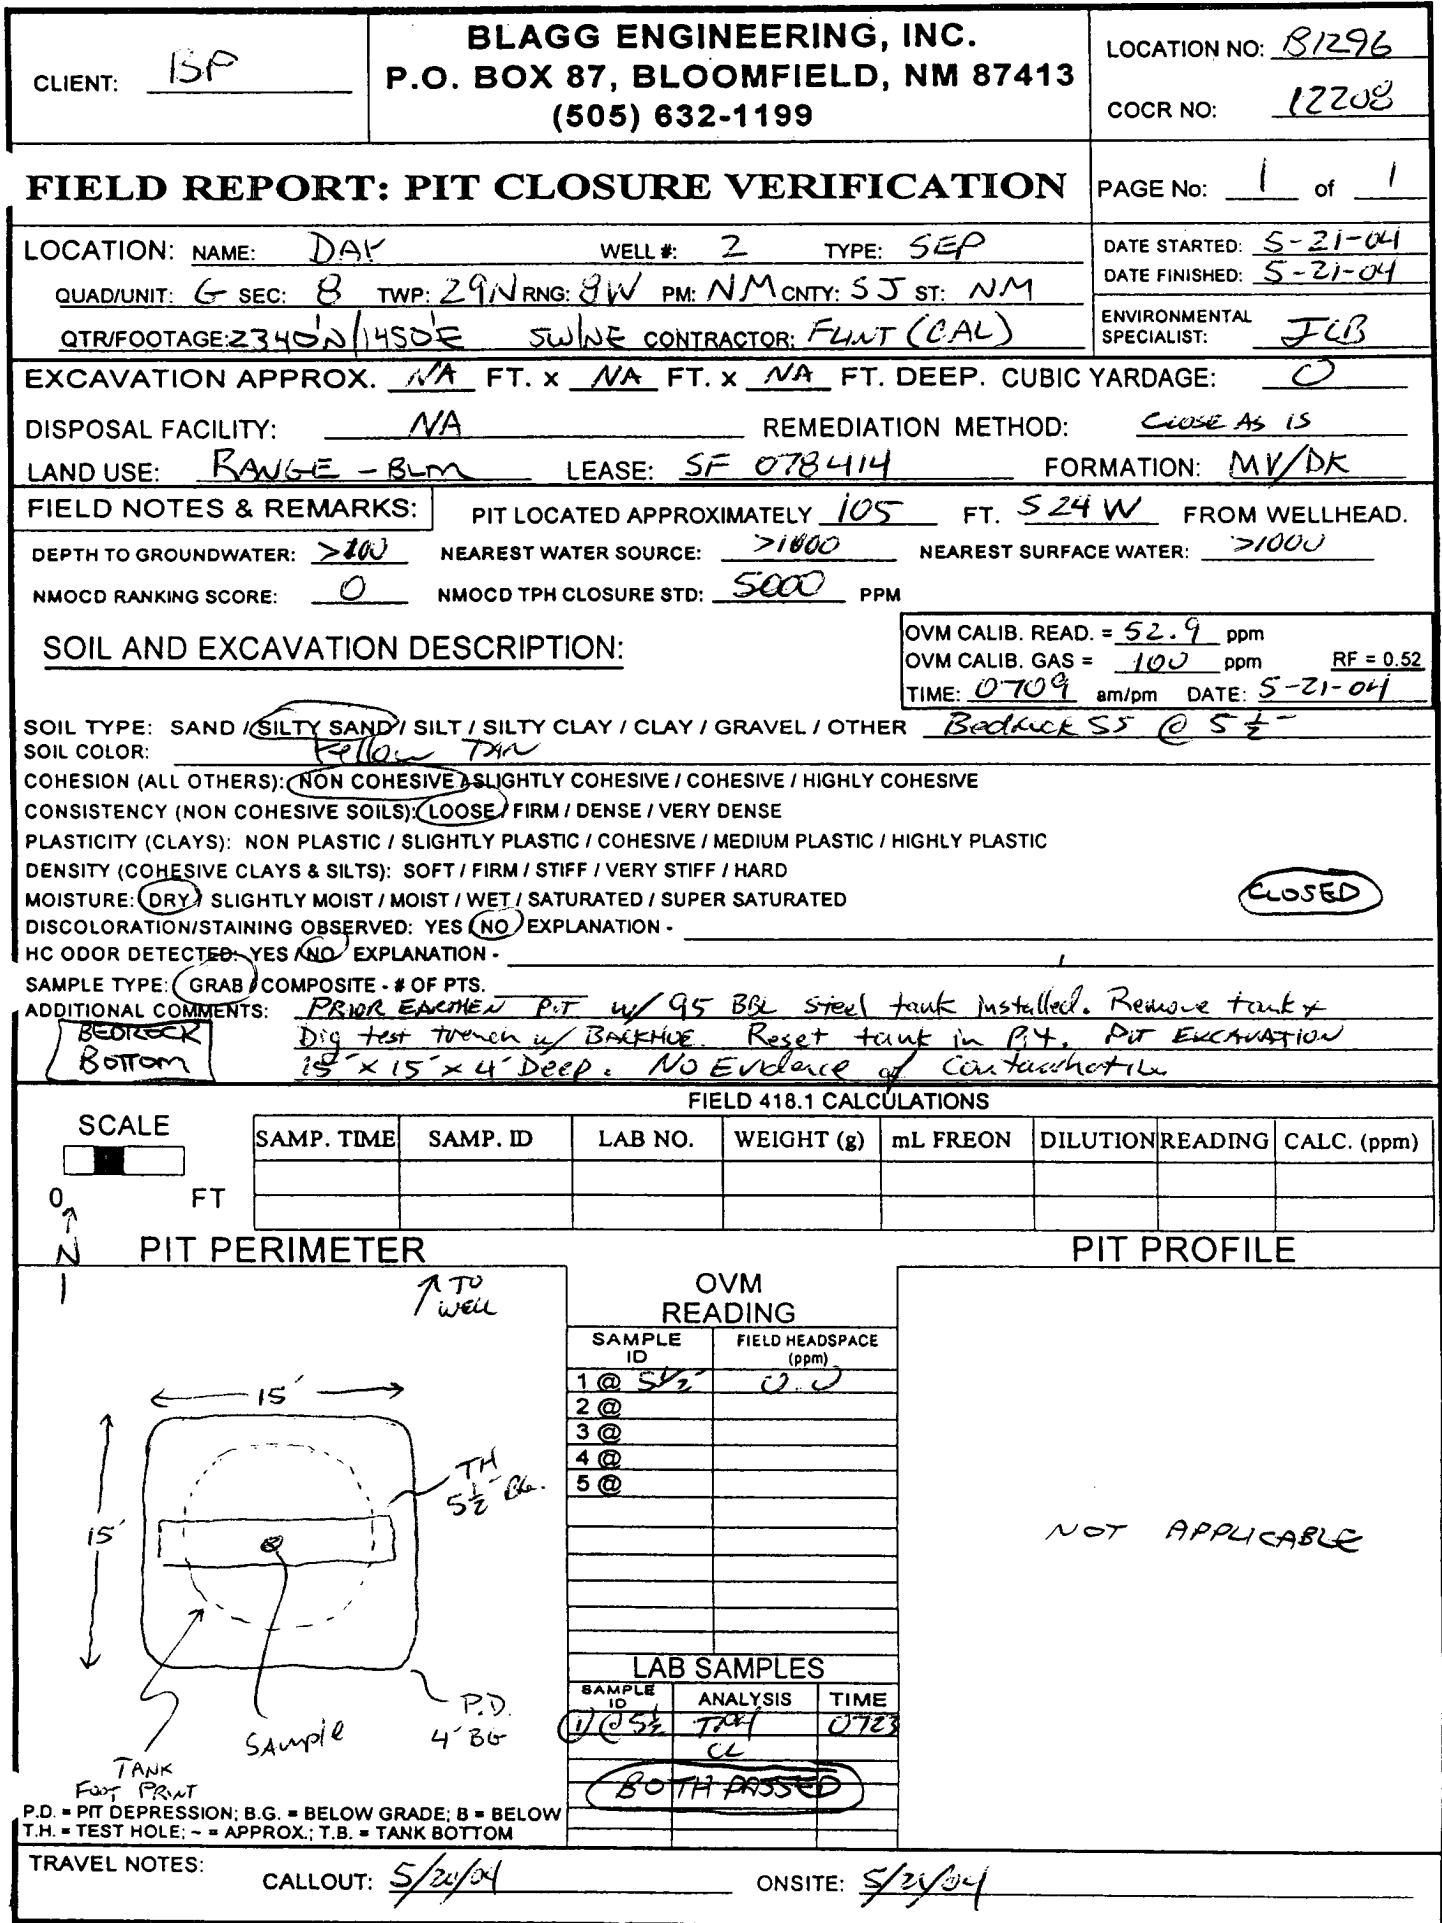 CLIENT: BP
BLAGG ENGINEERING, INC.
P.O. BOX 87, BLOOMFIELD, NM 87413
(505) 632-1199
LOCATION NO: B1296
COCR NO: 12208
FIELD REPORT: PIT CLOSURE VERIFICATION
PAGE No: 1 of 1
LOCATION: NAME: DAY WELL #: 2 TYPE: SEP
QUAD/UNIT: G SEC: 8 TWP: 29N RNG: 8W PM: NM CNTY: SJ ST: NM
QTR/FOOTAGE: 2340'N/1450'E SW/NE CONTRACTOR: FLINT (CAL)
DATE STARTED: 5-21-04
DATE FINISHED: 5-21-04
ENVIRONMENTAL SPECIALIST: JCB
EXCAVATION APPROX. NA FT. x NA FT. x NA FT. DEEP. CUBIC YARDAGE: 0
DISPOSAL FACILITY: NA REMEDIATION METHOD: CLOSE AS IS
LAND USE: RANGE - BLM LEASE: SF 078414 FORMATION: MV/DK
FIELD NOTES & REMARKS: PIT LOCATED APPROXIMATELY 105 FT. S24W FROM WELLHEAD.
DEPTH TO GROUNDWATER: >100 NEAREST WATER SOURCE: >1000 NEAREST SURFACE WATER: >1000
NMOCD RANKING SCORE: 0 NMOCD TPH CLOSURE STD: 5000 PPM
SOIL AND EXCAVATION DESCRIPTION:
OVM CALIB. READ. = 52.9 ppm
OVM CALIB. GAS = 100 ppm RF = 0.52
TIME: 0709 am/pm DATE: 5-21-04
SOIL TYPE: SAND / SILTY SAND / SILT / SILTY CLAY / CLAY / GRAVEL / OTHER Bedrock SS @ 5 1/2'
SOIL COLOR: Yellow TAN
COHESION (ALL OTHERS): NON COHESIVE / SLIGHTLY COHESIVE / COHESIVE / HIGHLY COHESIVE
CONSISTENCY (NON COHESIVE SOILS): LOOSE / FIRM / DENSE / VERY DENSE
PLASTICITY (CLAYS): NON PLASTIC / SLIGHTLY PLASTIC / COHESIVE / MEDIUM PLASTIC / HIGHLY PLASTIC
DENSITY (COHESIVE CLAYS & SILTS): SOFT / FIRM / STIFF / VERY STIFF / HARD
MOISTURE: DRY / SLIGHTLY MOIST / MOIST / WET / SATURATED / SUPER SATURATED
CLOSED
DISCOLORATION/STAINING OBSERVED: YES / NO EXPLANATION -
HC ODOR DETECTED: YES / NO EXPLANATION -
SAMPLE TYPE: GRAB / COMPOSITE - # OF PTS.
ADDITIONAL COMMENTS: PRIOR EARTHEN PIT w/ 95 BBL steel tank installed. Remove tank +
Dig test trench w/ BACKHOE. Reset tank in Pit. PIT EXCAVATION
15' x 15' x 4' Deep. No Evidence of Contamination
BEDROCK
BOTTOM
FIELD 418.1 CALCULATIONS
SCALE
0 FT
SAMP. TIME SAMP. ID LAB NO. WEIGHT (g) mL FREON DILUTION READING CALC. (ppm)
N
PIT PERIMETER
PIT PROFILE
TO WELL
15'
15'
TH
5 1/2' BG.
P.D.
4' BG
SAMPLE
TANK
FOOT PRINT
P.D. = PIT DEPRESSION; B.G. = BELOW GRADE; B = BELOW
T.H. = TEST HOLE; ~ = APPROX.; T.B. = TANK BOTTOM
OVM
READING
SAMPLE ID FIELD HEADSPACE (ppm)
1 @ 5 1/2' 0.0
2 @
3 @
4 @
5 @
LAB SAMPLES
SAMPLE ID ANALYSIS TIME
1 @ 5 1/2' TPH 0723
CL
BOTH PASSED
NOT APPLICABLE
TRAVEL NOTES: CALLOUT: 5/20/04 ONSITE: 5/21/04